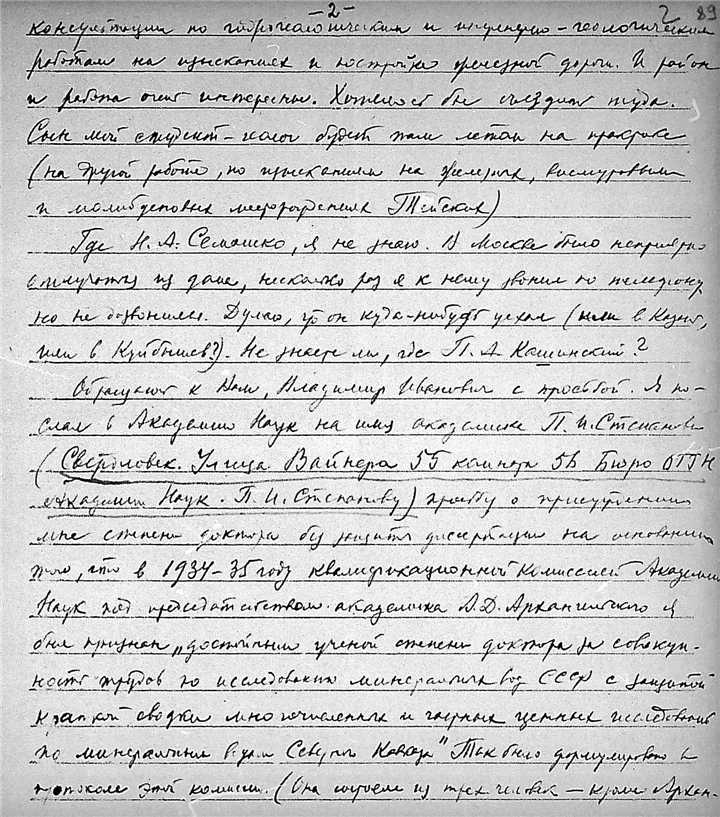 -2-
2 89
консультации по гидрогеологическим и инженерно-геологическим
работам на изысканиях и постройке железной дороги. И район
и работа очень интересны. Хотелось бы съездить туда.
Сын мой студент-геолог будет там летом на практике
(на другой работе, по изысканиям на железных, висмутовых
и молибденовых месторождениях Тейских)
Где Н.А. Семашко, я не знаю. В Москве было неприятно
из дома, несколько раз я к нему звонил по телефону
но не дозвонился. Думаю, что он куда-нибудь уехал (или в Казань,
или в Куйбышев?). Не знаете ли, где П.А. Кашинский?
Обращаюсь к Вам, Владимир Иванович с просьбой. Я по-
слал в Академию Наук на имя академика П.И. Степанова
(Свердловск. Улица Вайнера 55 комната 56 Бюро ОГГН
Академии Наук. П.И. Степанову) просьбу о присуждении
мне степени доктора без защиты диссертации на основании
того, что в 1934-35 году квалификационной комиссией Академии
Наук под председательством академика А.Д. Архангельского я
был признан „достойным ученой степени доктора за совокуп-
ность трудов по исследованию минеральных вод СССР с защитой
краткой сводки многочисленных и ценных исследований
по минеральным водам Северного Кавказа" Так было формулировано в
протоколе этой комиссии. (Она состояла из трех человек — кроме Архан-